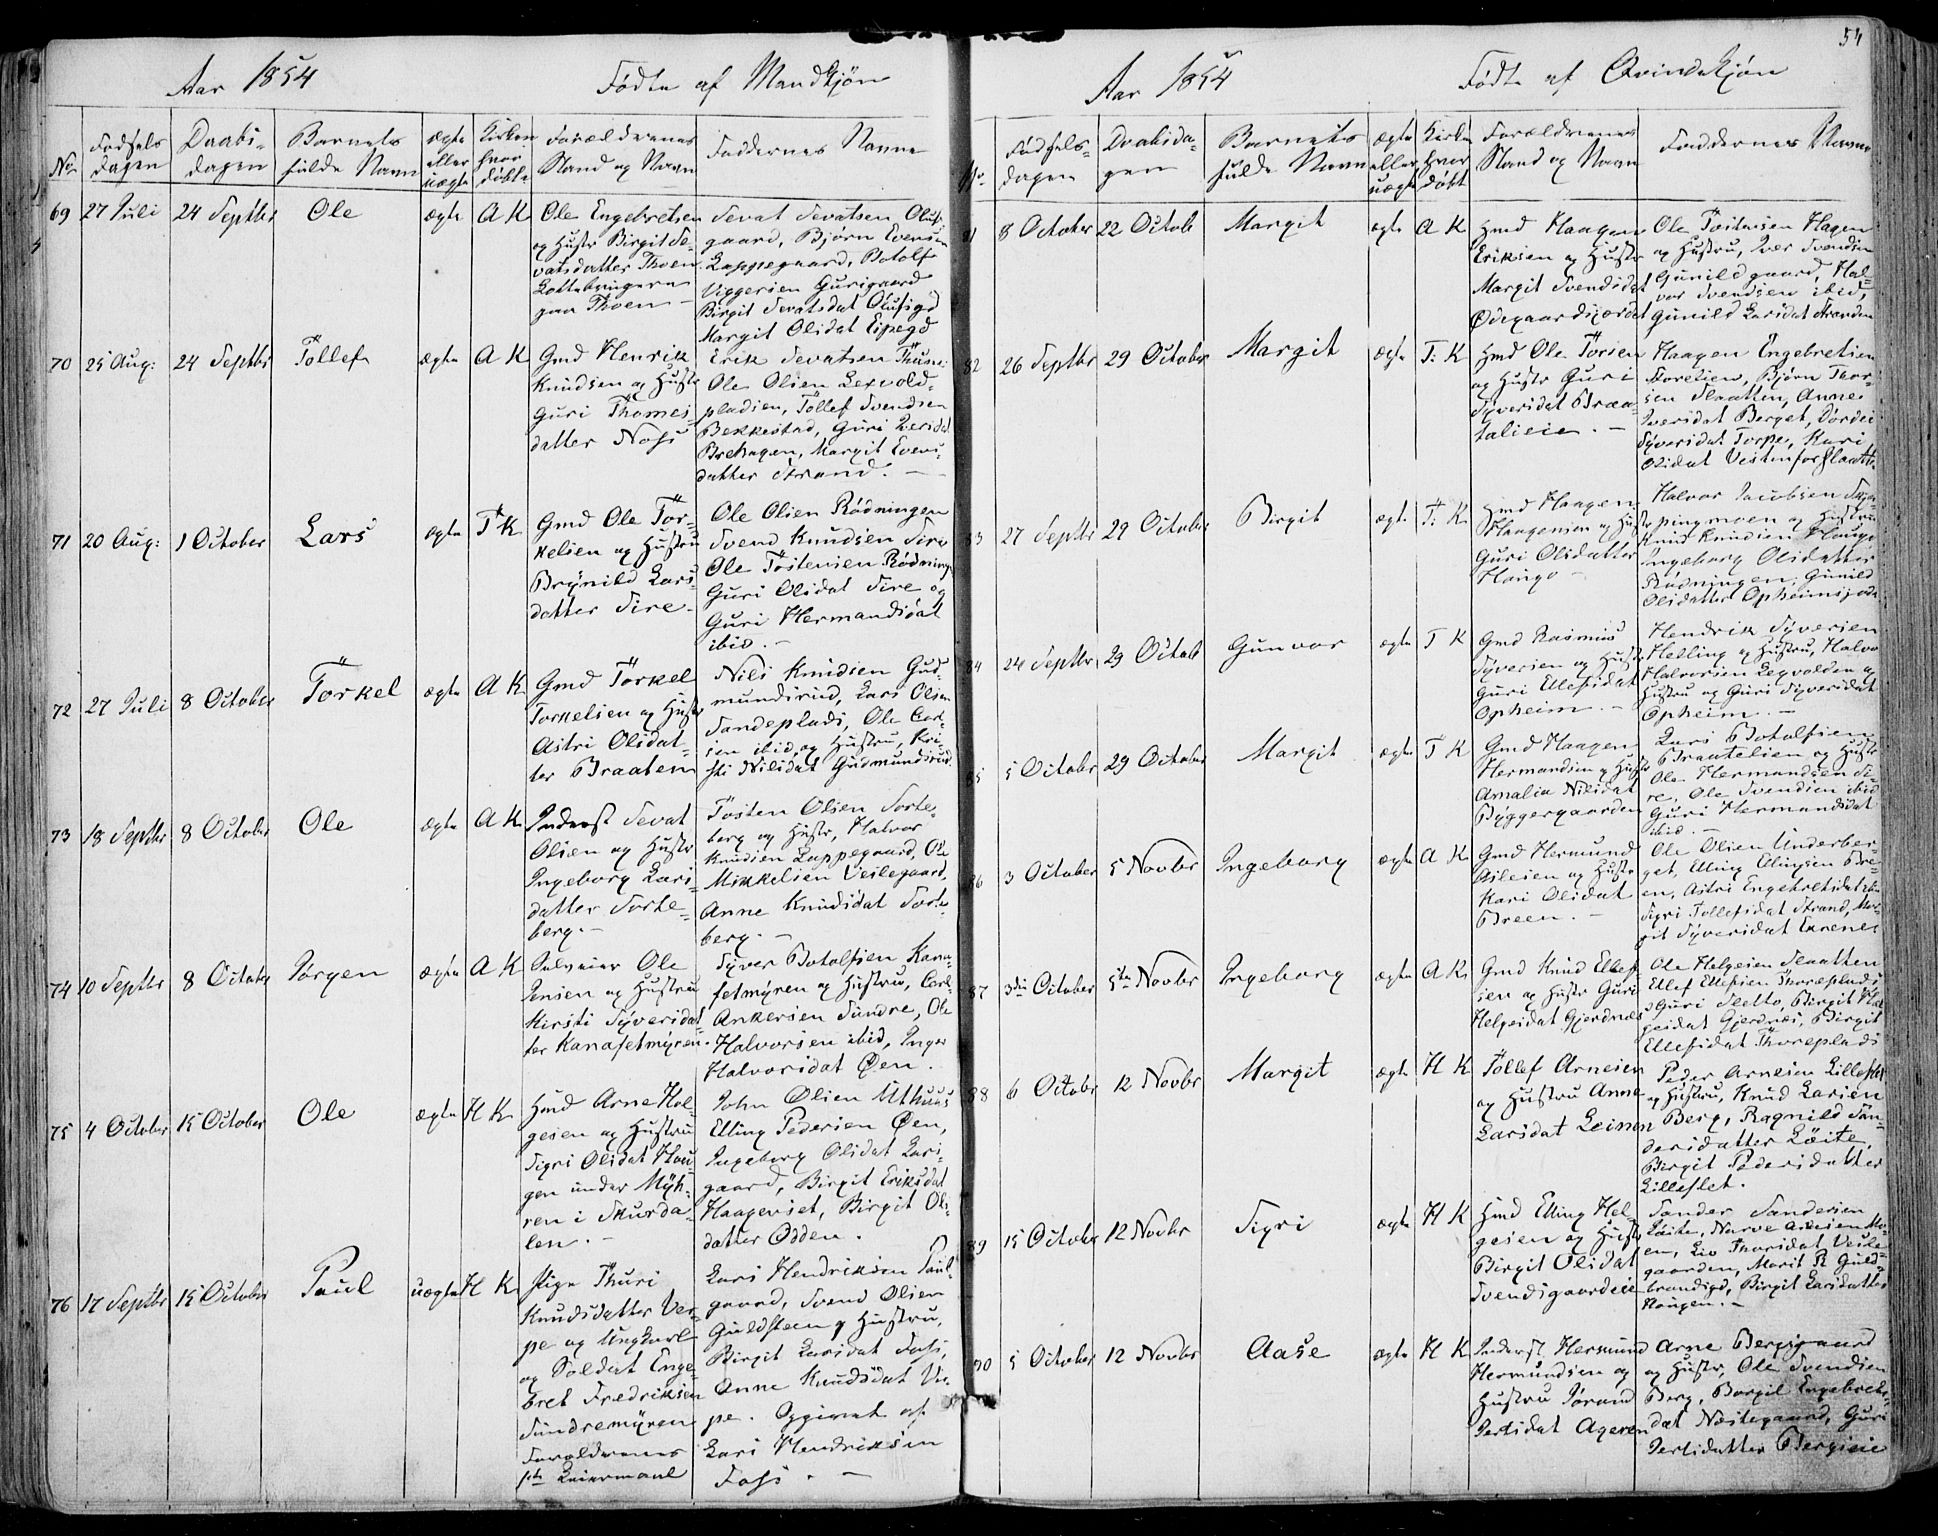 Aar 1854
Fødte af Mandkjøn
No
Fødsels
dagen
Daabs-
dagen
Barnets
fulde Navn
ægte
eller
uægte
Kirken
hvor
døbte
Forældrenes
Stand og Navn
Faddernes Navne
69
27 Juli
24 Septbr
Ole
ægte
A K
Ole Engebretsen
og Hustr Birgit Se-
vatsdatter Thoen
Thoen
Sevat Sevatsen
gaard, Bjørn Evensen
Lappegaard, Botolf
Viggersen Gurigaard
Birgit Sevatsdat
Margit Olsdat
70
25 Aug:
24 Septbr
Tollef
ægte
A K
Gmd Henrik
Knudsen og Hustr
Guri Thomes
datter Noss
Erik Sevatsen
Ole Olsen Lexvold-
pladsen, Tollef Svendsen
Bekkestad, Guri Iversdat
Brehagen, Margit Evens-
datter Strand. —
71
20 Aug:
1 October
Lars
ægte
T K
Gmd Ole Tor-
kelsen og Hustru
Brynild Lars-
datter Sire-
Ole Olsen Rødningen
Svend Knudsen Sire
Ole Tostensen Rødning
Guri Olsdat Sire og
Guri Hermandsdat
ibid. —
72
27 Juli
8 October
Torkel
ægte
A K
Gmd Torkel
Torkelsen og Hustr
Astri Olsdat-
ter Braaten
Nils Knudsen Gud-
mundsrud, Lars Olsen
Sandeplads, Ole Carl-
sen ibid og Hustru, Kri-
sti Nilsdat Gudmundsrud
73
18 Septbr
8 October
Ole
ægte
A K
Inderst Sevat
Olsen og Hustr
Ingeborg Lars-
datter Torte-
berg. —
Tosten Olsen Torte-
berg og Hustr, Halvor
Knudsen Lappegaard, Ole
Mikkelsen Veslegaard,
Anne Knudsdat Torte-
berg. —
74
10 Septbr
8 Octobr
Jørgen
ægte
A K
Ole
Jensen og Hustru
Kirsti Syversdat-
ter Kanafetmyren.
Syver Botolfsen Kana-
fetmyren og Hustru, Carl
Ankersen Sundre, Ole
Halvorsen ibid, Inger
Halvorsdat Øen.
75
4 October
15 October
Ole
ægte
H K
Hmd Arne Hel-
gesen og Hustru
Sigri Olsdat Hau-
gen under Myh-
ren i Skurda-
len. —
John Olsen Uthuus
Elling Pedersen Øen,
Ingeborg Olsdat Lars-
gaard, Birgit Eriksdat
Haagenset, Birgit Ols-
datter Odden.
76
17 Septbr
15 October
Paul
uægte
H K
Pige Thuri
Knudsdatter Ver-
pe og Ungkarl
og Soldat Enge-
bret Fredriksen
Sundremyren
Forældrenes
1ste Leiermaal
Lars Hendriksen Paul-
gaard, Svend Olsen
Guldsteen og Hustru,
Birgit Larsdat Foss,
Anne Knudsdat Ver-
pe. Opgivet af
Lars Hendriksen
Foss. —
54
Aar 1854
Fødte af Qvindekjøn
No
Fødsels-
dagen
Daabsda-
gen
Barnets
fulde Navn
ægte
eller
uægte
Kirke
hvor
døbt
Forældrenes
Stand og Navn
Faddernes Navne
81
8 October
22 Octob
Margit
ægte
A K
Hmd Haagen
Eriksen og Hustr
Margit Svendsdat
Ødegaardsjordet
Ole Tostensen Hagen
og Hustru, Iver Svendsen
Gunildgaard, Hal-
vor Svendsen ibid,
Gunild Larsdat Stranden
82
26 Septbr
29 October
Margit
ægte
T: K
Hmd Ole Torsen
og Hustr Guri
Syversdat Braa-
talieie. —
Haagen Engebretsen
Bjørn Thor-
sen Slaatten, Anne
Iversdat Berget, Dordei
Syversdat Torpe, Kari
Olsdat Vestenfor Slaatte
83
27 Septbr
29 October
Birgit
ægte
T: K
Gmd Haagen
Haagensen og Hustr
Guri Olsdatter
Haugo —
Halvor Jacobsen
pingmoen og Hustru
Knud Knudsen Haugo
Ingeborg Olsdatter
Rødningen, Gunild
Olsdatter Opheimsjorde
84
24 Septbr
29 Octob
Gunvor
ægte
T K
Gmd Rasmus
Syversen og Hustr
Guri Ellefsdat
Opheim. —
Hendrik Syversen
Helling og Hustru, Halvor
Halvorsen Lexvolden og
Hustru og Guri Syversdat
Opheim. —
85
5 Octobr
29 October
Margit
ægte
T K
Gmd Haagen
Hermandsen og Hustr
Amalia Nilsdat
Byggergaarden
Lars Botolfsen
Braatelien og Hustr
Ole Hermandsen Si-
re, Ole Svendsen ibid
Guri Hermandsdat
ibid. —
86
3 October
5 Novbr
Ingeborg
ægte
A K
Gmd Hermund
Asle­sen og Hustr
Kari Olsdat
Breen. —
Ole Olsen Underber-
get, Elling Ellingsen Bre-
en, Astri Engebretsdat ibid
Sigri Tollefsdat Strand, Mar-
git Syversdat
87
3die October
5te Novbr
Ingeborg
ægte
A K
Gmd Knud Ellef-
sen og Hustr Guri
Helgesdat Gjerdnæs
Ole Helgesen Slaatten
Ellef Ellefsen Thoreplads
Guri Sletto, Birgit Hel-
gesdat Gjerdnæs, Birgit
Ellefsdat Thoreplads
88
6 Octobr
12 Novbr
Margit
ægte
H K
Tollef Arnesen
og Hustru Anne
Larsdat Leinen
Peder Arnesen Lilleslet
og Hustru, Knud Larsen
Berg, Ragnild San-
dersdatter Løite,
Birgit Pedersdatter
Lilleslet.
89
15 October
12 Novbr
Sigri
ægte
H K
Hmd Elling Hel-
gesen og Hustr
Birgit Olsdat
Svendsgaardeie
Sander Sandersen
Løite, Narve Arnesen Mo-
en, Liv Thorsdat Vesle-
gaarden, Marit R Guld-
brandsgd, Birgit Larsdatter
Haugen. —
90
5 October
12 Novbr
Aase
ægte
H K
Inderst Hermund
Hermundsen og
Hustru Jørand
Persdat Ageren
Arne Bergsgaard
og Hustr, Ole Svendsen
Berg, Bargil Engebrets-
dat Næstegaard, Guri
Persdatter Bergseie